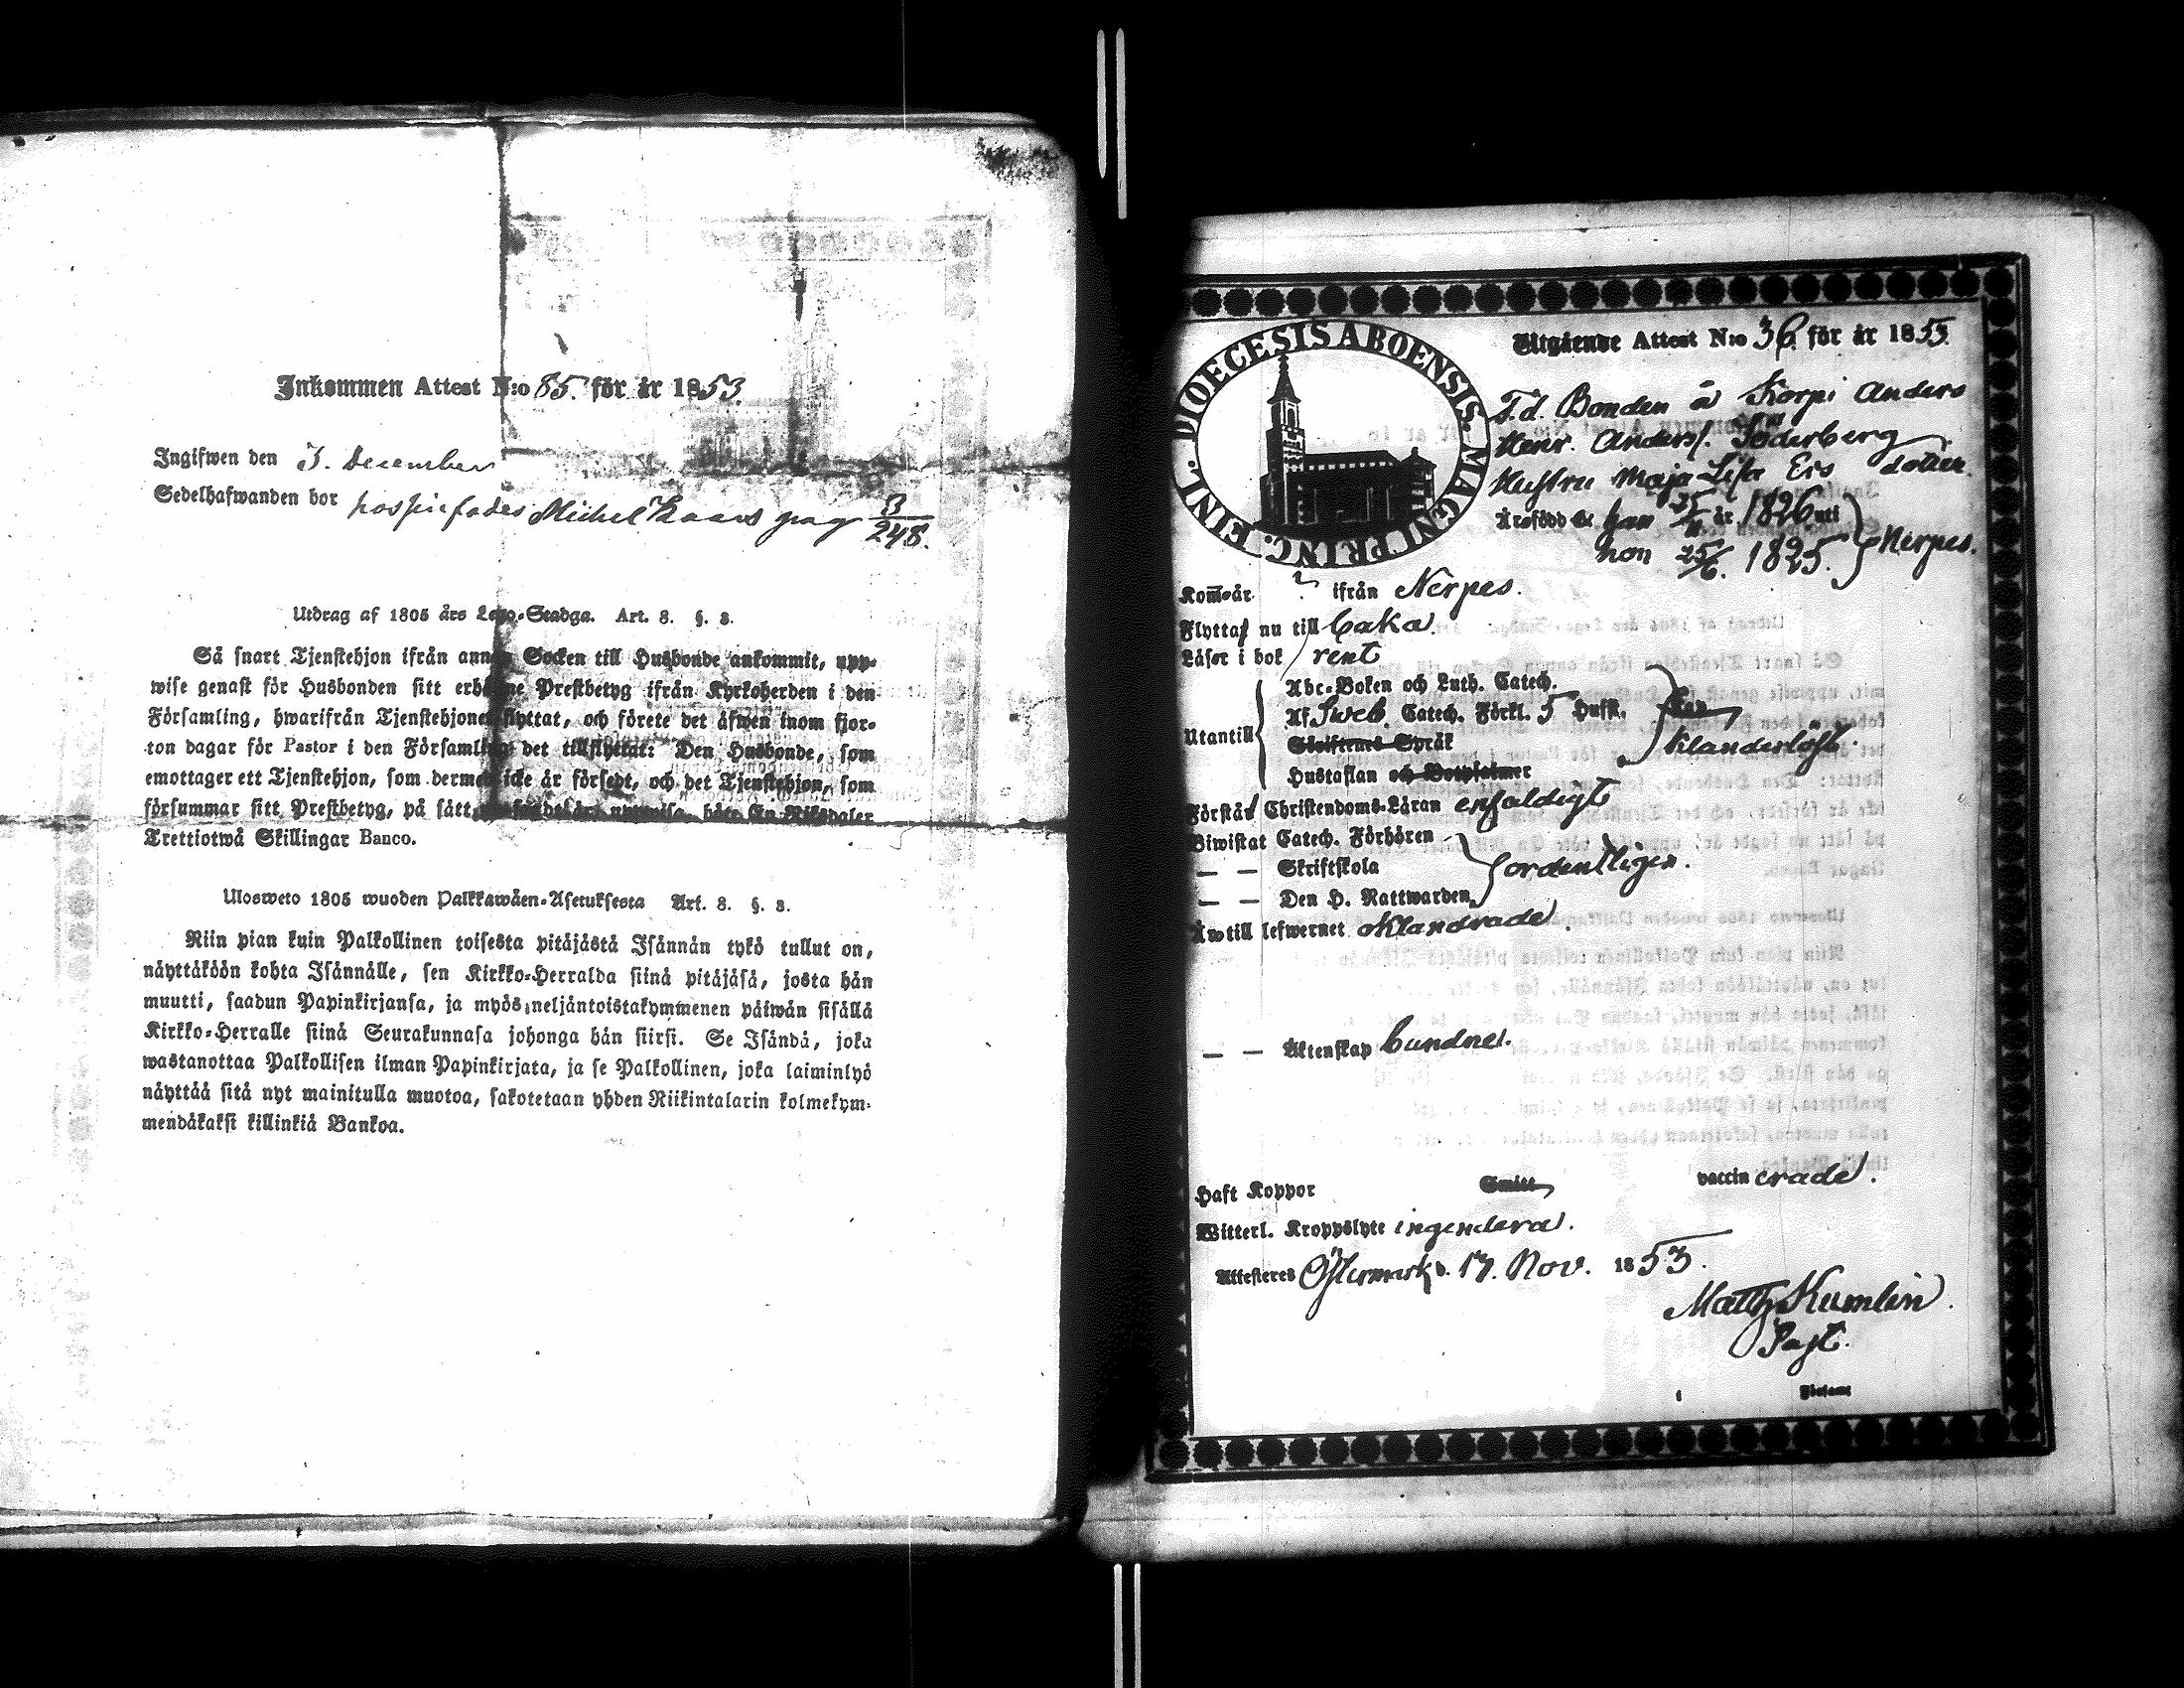 Inkommen Attest N:o 85. för år 1853.
Ingifwen den 3. December
Sedelhafwanden bor Michel pag 3/248.
Utdrag af 1805 års Lego-Stadga. Art. 8. §. 8.
Så snart Tjenstehjon ifrån annan Socken till Husbonde ankommit, upp-
wise genast för Husbonden sitt erhållne Prestbetyg ifrån Kyrkoherden i den
Församling, hwarifrån Tjenstehjonet flyttat, och förete det äfwen inom fjor-
ton dagar för Pastor i den Församling det tillflyttat: Den Husbonde, som
emottager ett Tjenstehjon, som dermed icke är försedt, och det Tjenstehjon, som
försummar sitt Prestbetyg, på sätt, uppwisa, böte En Riksdaler
Trettiotwå Skillingar Banco.
Ulosweto 1805 wuoden Palkkawäen-Asetuksesta Art. 8. §. 8.
Niin pian kuin Palkollinen toisesta pitäjästä Isännän tykö tullut on,
näyttäköön kohta Isännälle, sen Kirkko-Herralda siinä pitäjäsä, josta hän
muutti, saadun Papinkirjansa, ja myös neljäntoistakymmenen päiwän sisällä
Kirkko-Herralle siinä Seurakunnasa johonga hän siirsi. Se Isändä, joka
wastanottaa Palkollisen ilman Papinkirjata, ja se Palkollinen, joka laiminlyö
näyttää sitä nyt mainitulla muotoa, sakotetaan yhden Riikintalarin kolmekym-
mendäkaksi killinkiä Bankoa.
DIOECESIS ABOENSIS. MAGNI PRINC. FINL.
Utgående Attest N:o 36. för år 1853.
F.d. Bonden å Korpi Anders
Henr. Anderss. Söderberg
Hustru Maja Lisa Ers dotter
Årsfödd är han 25/11 år 1826 uti
hon 25/6. 1825. Nerpes.
Kom år ? ifrån Nerpes.
Flytta nu till Caka
Läser i bok rent
Abc-Boken och Luth. Catech.
Utantill Af Sweb. Catech. Förkl. 5 Hufst. Kan
Skriftenes Språk klanderlöst.
Hustaflan och Botpsalmer
Förstår Christendoms-Läran enfaldigt
Biwistat Catech. Förhören
— — Skriftskola ordentligen.
— — Den H. Nattwarden
Är till lefwernet oklandrade.
— — Äktenskap bundne.
Haft Koppor Smitt vaccin erade.
Witterl. Kroppslyte ingendera.
Attesteres Östermark d. 17. Nov. 1853.
Matth Kumlin.
Past.